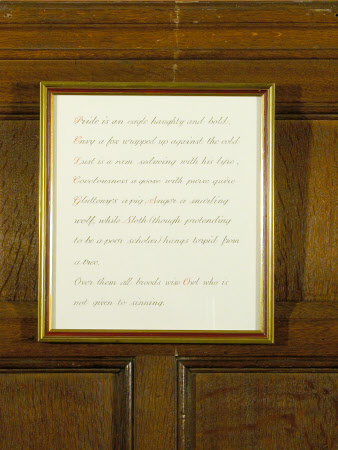 Pride is an eagle haughty and bold,
Envy a fox wrapped up against the cold
Lust is a ram serenading with his lyre,
Covetousness a goose with purse quire
Gluttony's a pig Anger is snarling
wolf, while Sloth (though pretending
to be a poor scholar) hangs torpid from
a tree.
Over them all broods wise Owl who is
not given to sinning.